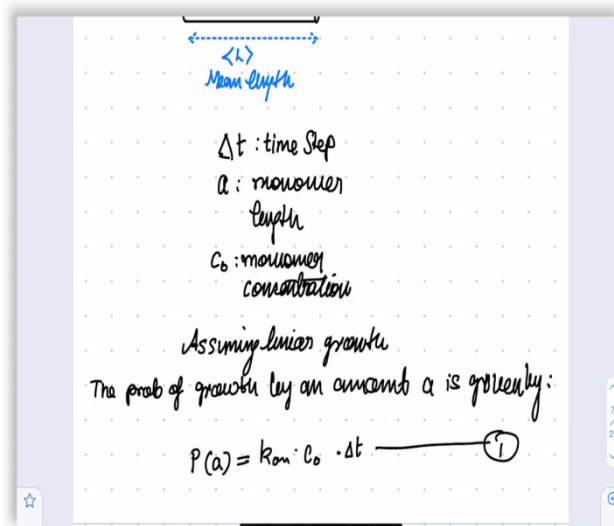 <L>
Mean length
Δt : time step
a : monomer
length
C₀ : monomer
concentration
Assuming linear growth
The prob of growth by an amount a is given by :
P(a) = kon · C₀ · Δt ——— ①